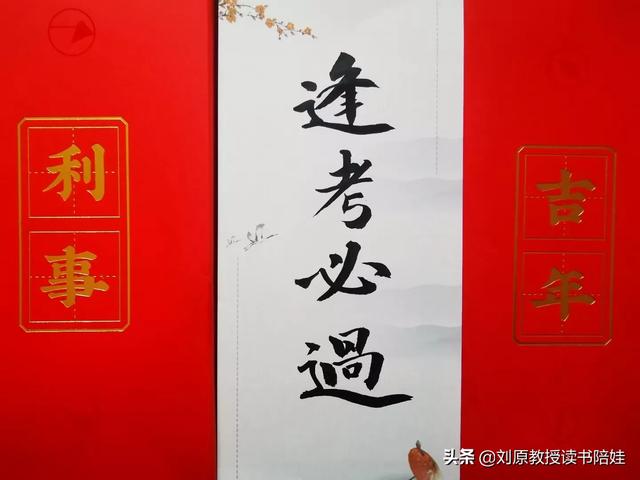 利事
逢考必過
吉年
头条 @刘原教授读书陪娃